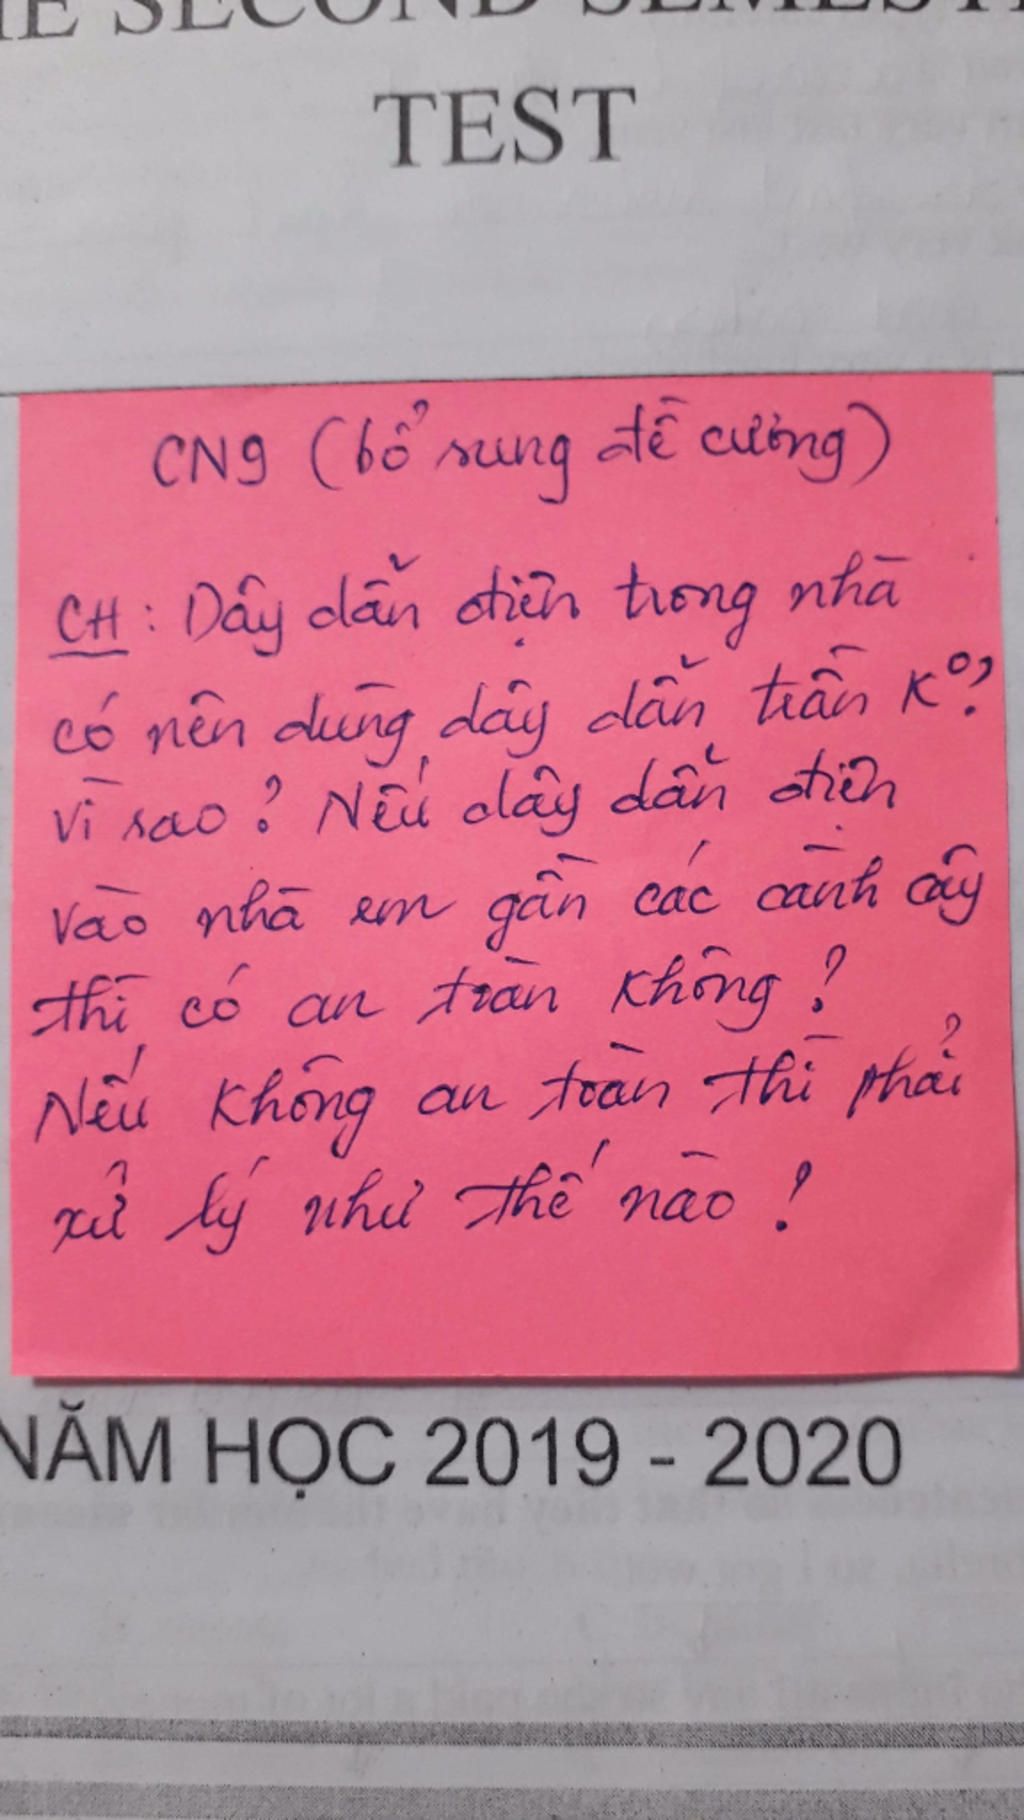 SECOND SEMEST
TEST
CN9 (bổ sung đề cương)
CH: Dây dẫn điện trong nhà
có nên dùng dây dẫn trần K°?
vì sao? Nếu dây dẫn điện
vào nhà em gần các cành cây
thì có an toàn không?
Nếu không an toàn thì phải
xử lý như thế nào?
NĂM HỌC 2019 - 2020